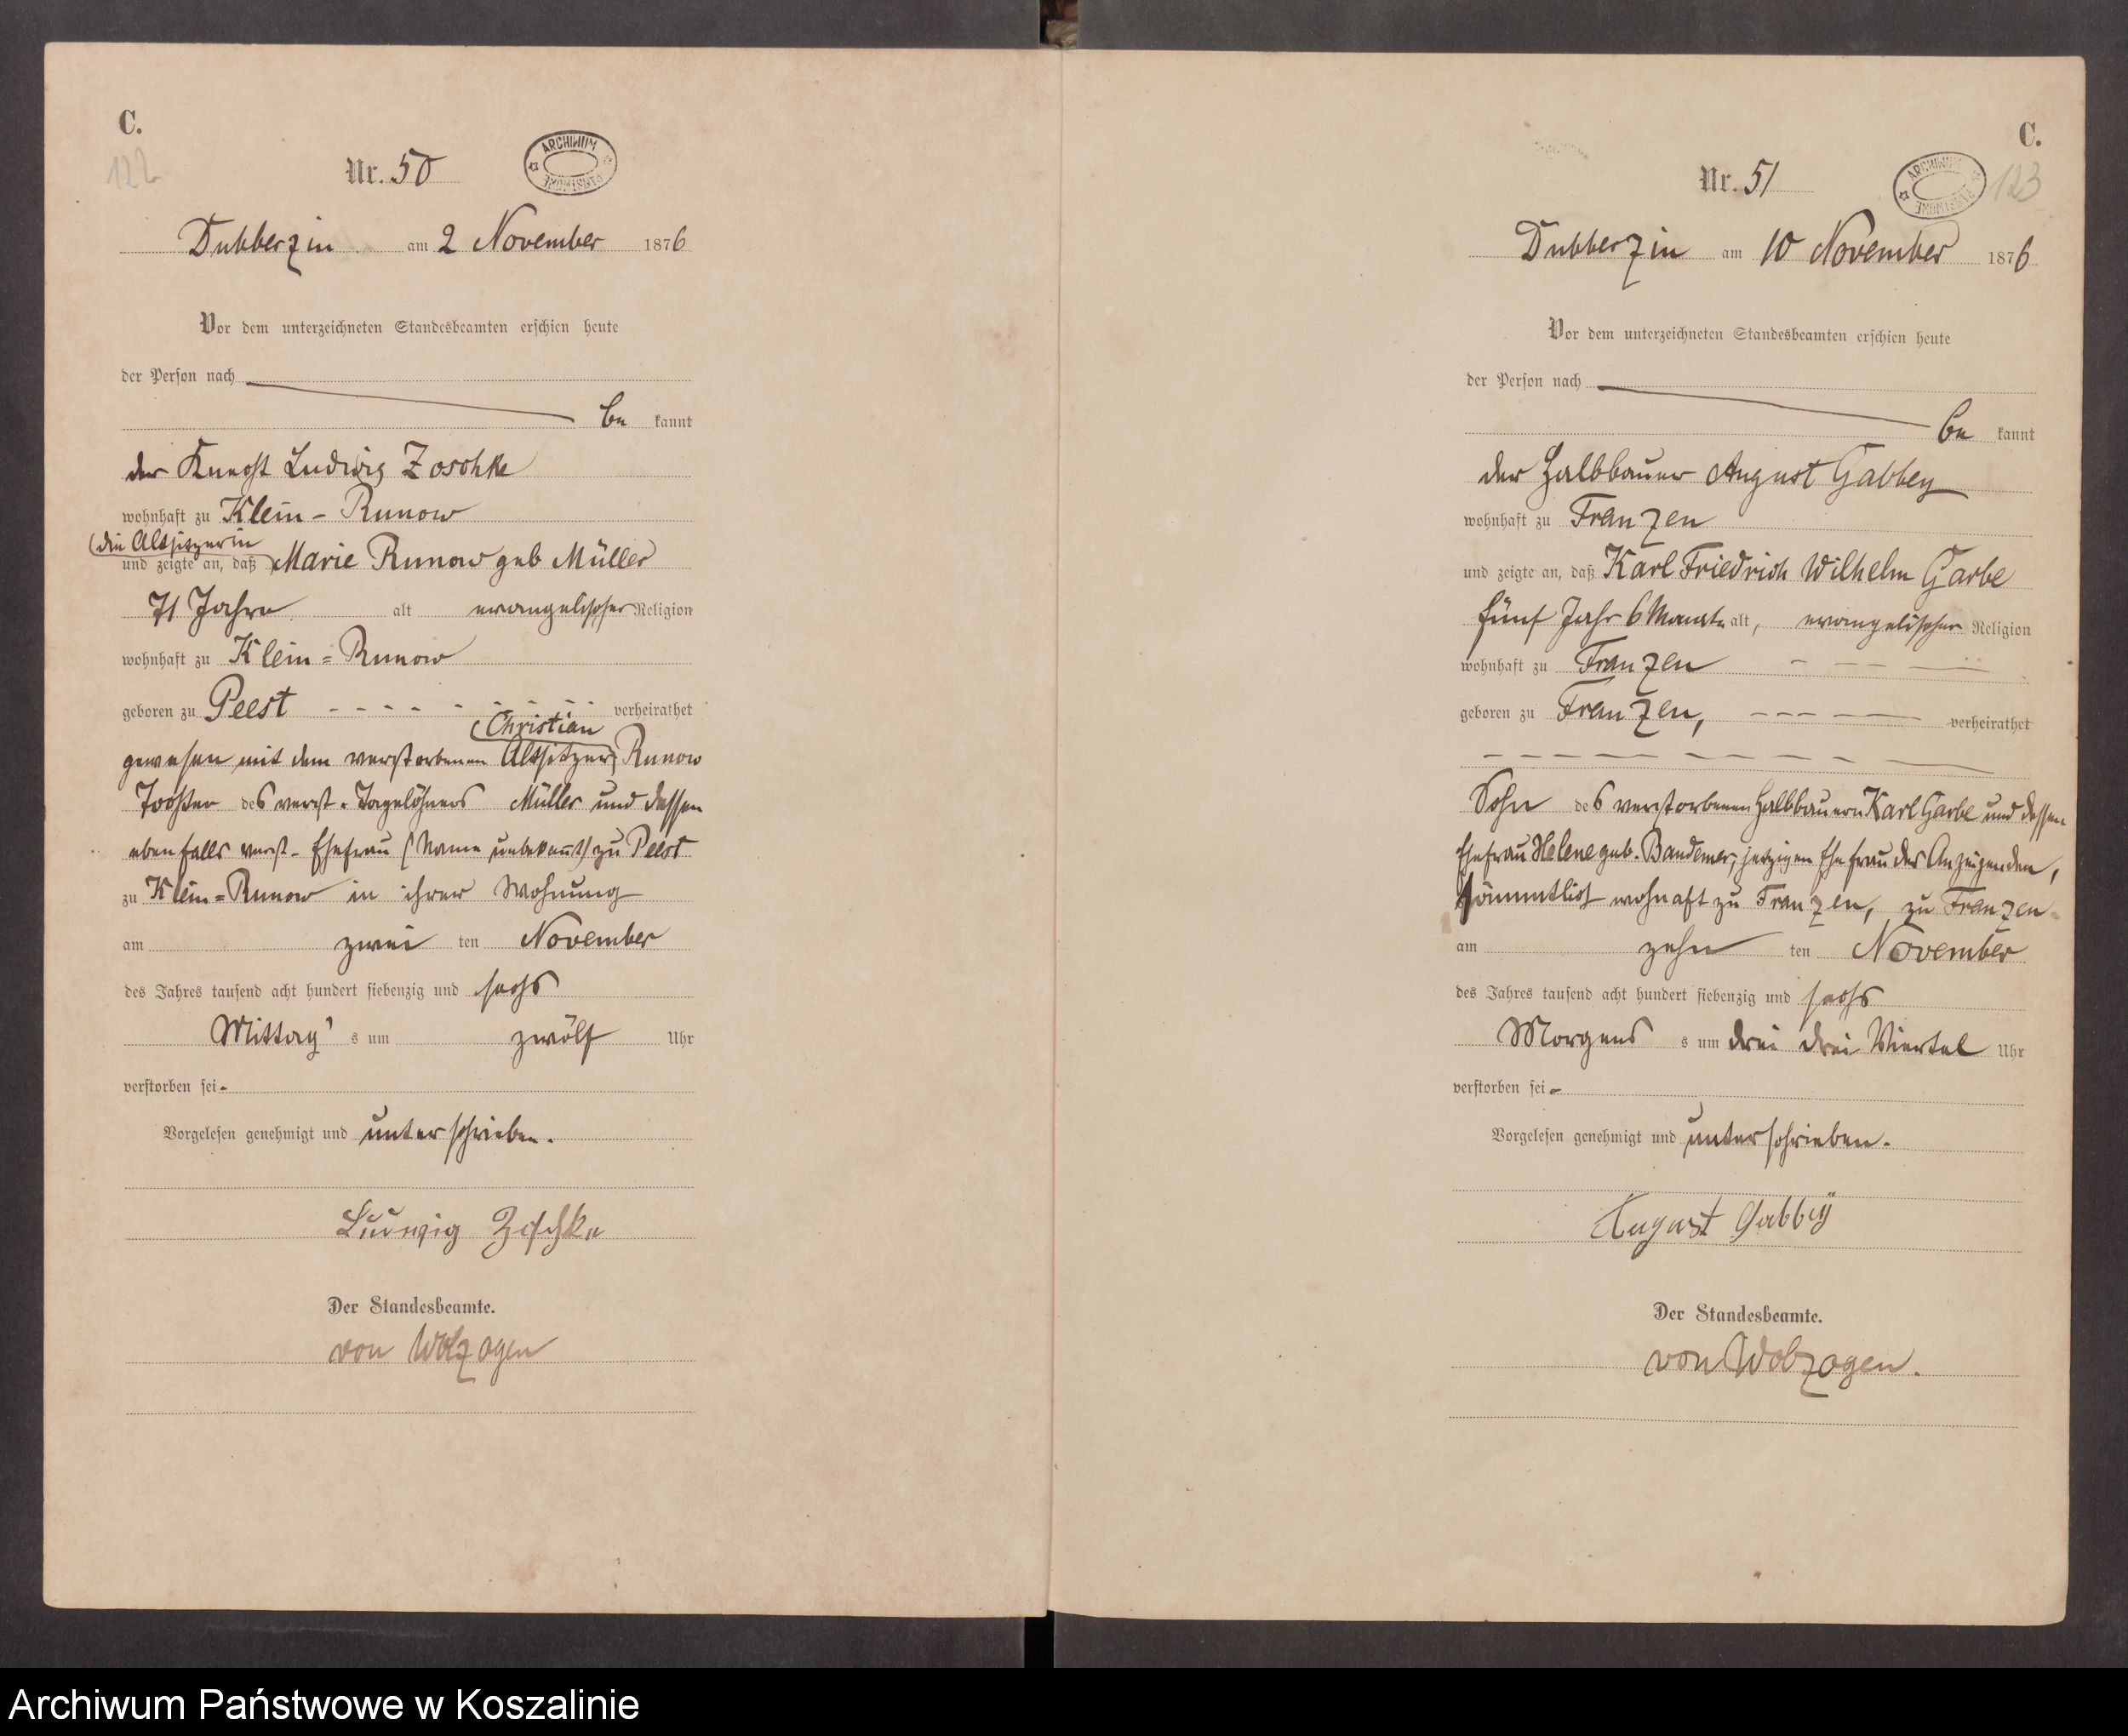 C.
122
Nr. 50
ARCHIWUM PAŃSTWOWE
Dubberzin am 2 November 1876
Vor dem unterzeichneten Standesbeamten erschien heute
der Person nach
be kannt
der Knecht Ludwig Zoschke
wohnhaft zu Klein-Runow
(die Altsitzerin
und zeigte an, daß Marie Runow geb Müller
71 Jahre alt evangelischer Religion
wohnhaft zu Klein=Runow
geboren zu Peest - - - - - - - - - verheirathet
(Christian
gewesen mit dem verstorbenen Altsitzer Runow
Tochter des verst. Tagelöhners Müller und dessen
ebenfalls verst. Ehefrau (Name unbekannt) zu Peest
zu Klein=Runow in ihrer Wohnung
am zwei ten November
des Jahres tausend acht hundert siebenzig und sechs
Mittag's um zwölf Uhr
verstorben sei.
Vorgelesen genehmigt und unterschrieben.
Ludwig Zoschke
Der Standesbeamte.
von Wolzogen
C.
123
Nr. 51
ARCHIWUM PAŃSTWOWE
Dubberzin am 10 November 1876
Vor dem unterzeichneten Standesbeamten erschien heute
der Person nach
be kannt
der Halbbauer August Gabbey
wohnhaft zu Franzen
und zeigte an, daß Karl Friedrich Wilhelm Garbe
fünf Jahr 6 Monate alt, evangelischer Religion
wohnhaft zu Franzen
geboren zu Franzen, verheirathet
Sohn des verstorbenen Halbbauern Karl Garbe und dessen
Ehefrau Helene geb. Bandemer, jetzigen Ehefrau des Anzeigenden,
sämmtlich wohnaft zu Franzen, zu Franzen
am zehn ten November
des Jahres tausend acht hundert siebenzig und sechs
Morgens s um drei drei Viertel Uhr
verstorben sei.
Vorgelesen genehmigt und unterschrieben.
August Gabbÿ
Der Standesbeamte.
von Wolzogen.
Archiwum Państwowe w Koszalinie